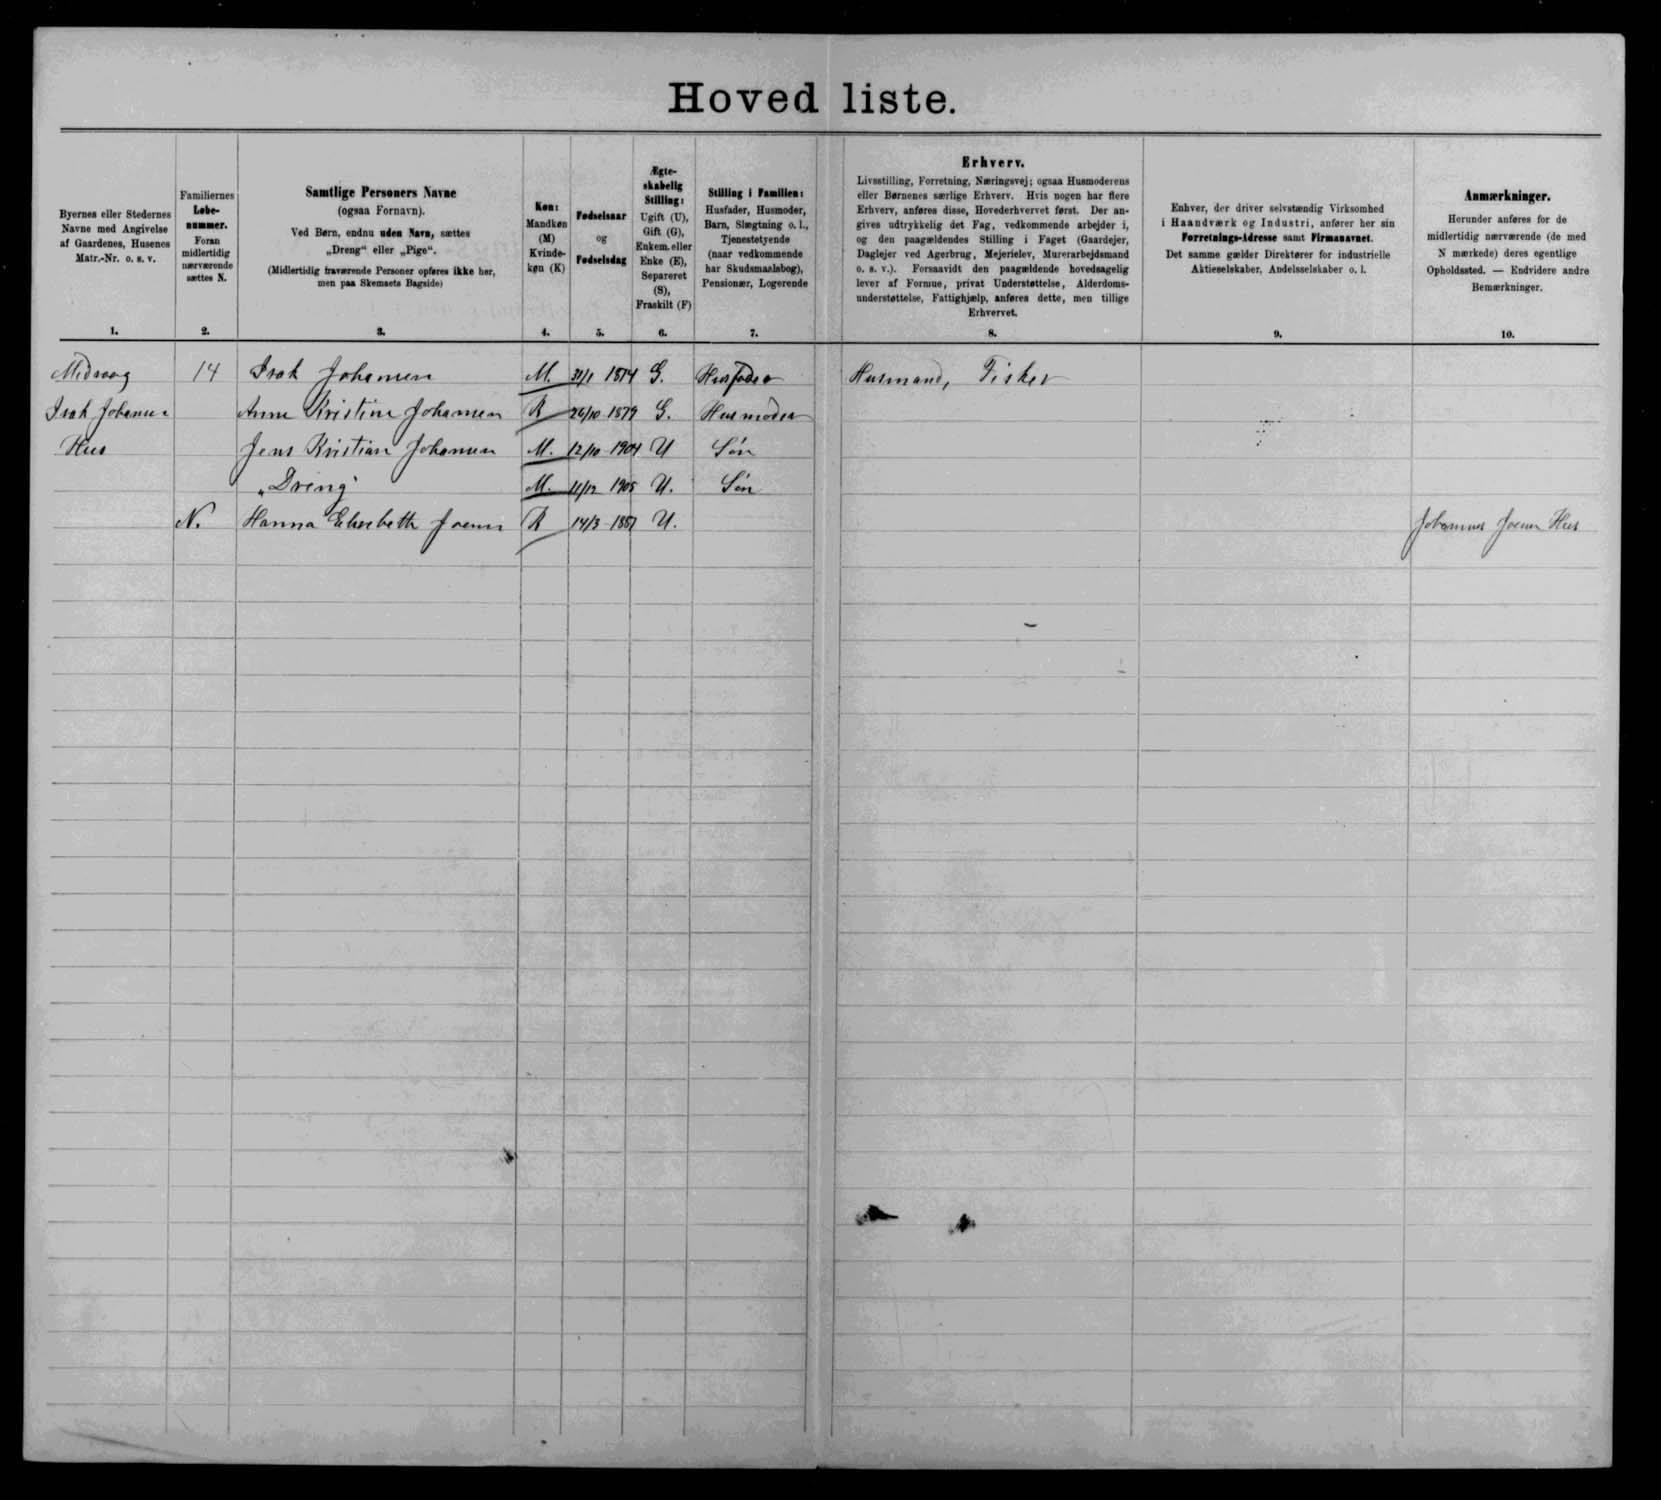 Hoved liste.
Byernes eller Stedernes
Navne med Angivelse
af Gaardenes, Husenes
Matr.-Nr. o. s. v.
1.
Familiernes
Løbe-
nummer.
Foran
midlertidig
nærværende
sættes N.
2.
Samtlige Personers Navne
(ogsaa Fornavn).
Ved Børn, endnu uden Navn, sættes
„Dreng“ eller „Pige“.
(Midlertidig fraværende Personer opføres ikke her,
men paa Skemaets Bagside)
3.
Køn:
Mandkøn
(M)
Kvinde-
køn (K)
4.
Fødselsaar
og
Fødselsdag
5.
Ægte-
skabelig
Stilling:
Ugift (U),
Gift (G),
Enkem. eller
Enke (E),
Separeret
(S),
Fraskilt (F)
6.
Stilling i Familien:
Husfader, Husmoder,
Barn, Slægtning o. l.,
Tjenestetyende
(naar vedkommende
har Skudsmaalsbog),
Pensionær, Logerende
7.
Erhverv.
Livsstilling, Forretning, Næringsvej; ogsaa Husmoderens
eller Børnenes særlige Erhverv. Hvis nogen har flere
Erhverv, anføres disse, Hovederhvervet først. Der an-
gives udtrykkelig det Fag, vedkommende arbejder i,
og den paagældendes Stilling i Faget (Gaardejer,
Daglejer ved Agerbrug, Mejerielev, Murerarbejdsmand
o. s. v.). Forsaavidt den paagældende hovedsagelig
lever af Formue, privat Understøttelse, Alderdoms-
understøttelse, Fattighjælp, anføres dette, men tillige
Erhvervet.
8.
Enhver, der driver selvstændig Virksomhed
i Haandværk og Industri, anfører her sin
Forretnings-Adresse samt Firmanavnet.
Det samme gælder Direktører for industrielle
Aktieselskaber, Andelsselskaber o. l.
9.
Anmærkninger.
Herunder anføres for de
midlertidig nærværende (de med
N mærkede) deres egentlige
Opholdssted. — Endvidere andre
Bemærkninger.
10.
Midvaag 14 Isak Johansen M. 31/1 1874 G. Husfader Husmand, Fisker
Isak Johansen Anne Kristine Johansen K 26/10 1879 G. Husmoder
Hus Jens Kristian Johansen M. 12/10 1904 U Søn
„Dreng“ M. 11/12 1905 U. Søn
N. Hanna Elisabeth Joensen K 14/3 1887 U. Johannes Joensen Hus